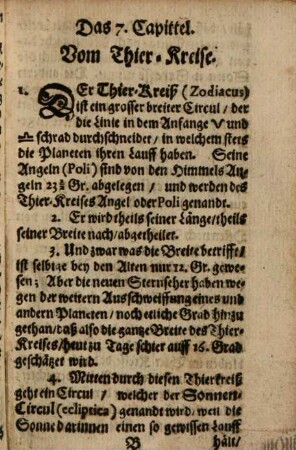 Das 7. Capittel.
Vom Thier-Kreise.
1. DEr Thier-Kreiß (Zodiacus)
ist ein grosser breiter Circul / der
die Linie in dem Anfange ♈ und
♎ schrad durchschneidet / in welchem stets
die Planeten ihren Lauff haben. Seine
Angeln (Poli) sind von den Himmels An-
geln 23½ Gr. abgelegen / und werden des
Thier-Kreises Angel oder Poli genandt.
2. Er wird theils seiner Länge / theils
seiner Breite nach / abgetheilet.
3. Und zwar was die Breite betrifft /
ist selbige bey den Alten nur 12. Gr. gewe-
sen; Aber die neuen Sternseher haben we-
gen der weitern Ausschweiffung eines und
andern Planeten / noch etliche Grad hinzu
gethan / daß also die gantze Breite des Thier-
Kreises / heut zu Tage schier auff 16. Grad
geschätzet wird.
4. Mitten durch diesen Thierkreiß
geht ein Circul / welcher der Sonnen-
Circul (ecliptica) genandt wird / weil die
Sonne darinnen einen so gewissen Lauff
B hält /